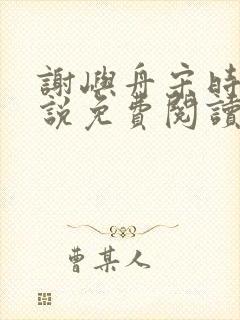 謝嶼舟宋時
說免費閱讀
曹某人